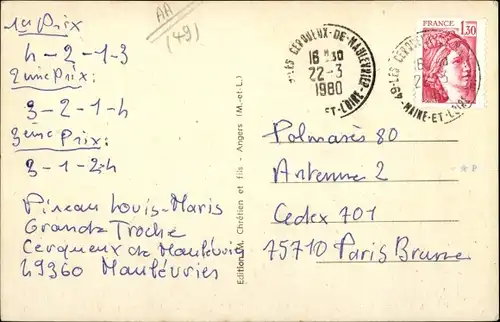 AA
(49)
1er Prix
4-2-1-3
2ème Prix:
3-2-1-4
3ème Prix:
3-1-2-4
Pineau Louis-Maris
Grande Troche
Cerqueux de Maulévrier
49360 Maulévries
Editions M. Chrétien et fils - Angers (M.-et-L.)
49-LES CERQUEUX-DE-MAULEVRIER
16 H30
22-3
1980
MAINE-ET-LOIRE
FRANCE
1,30
Palmarès 80
Antenne 2
Cedex 701
75710 Paris Brune